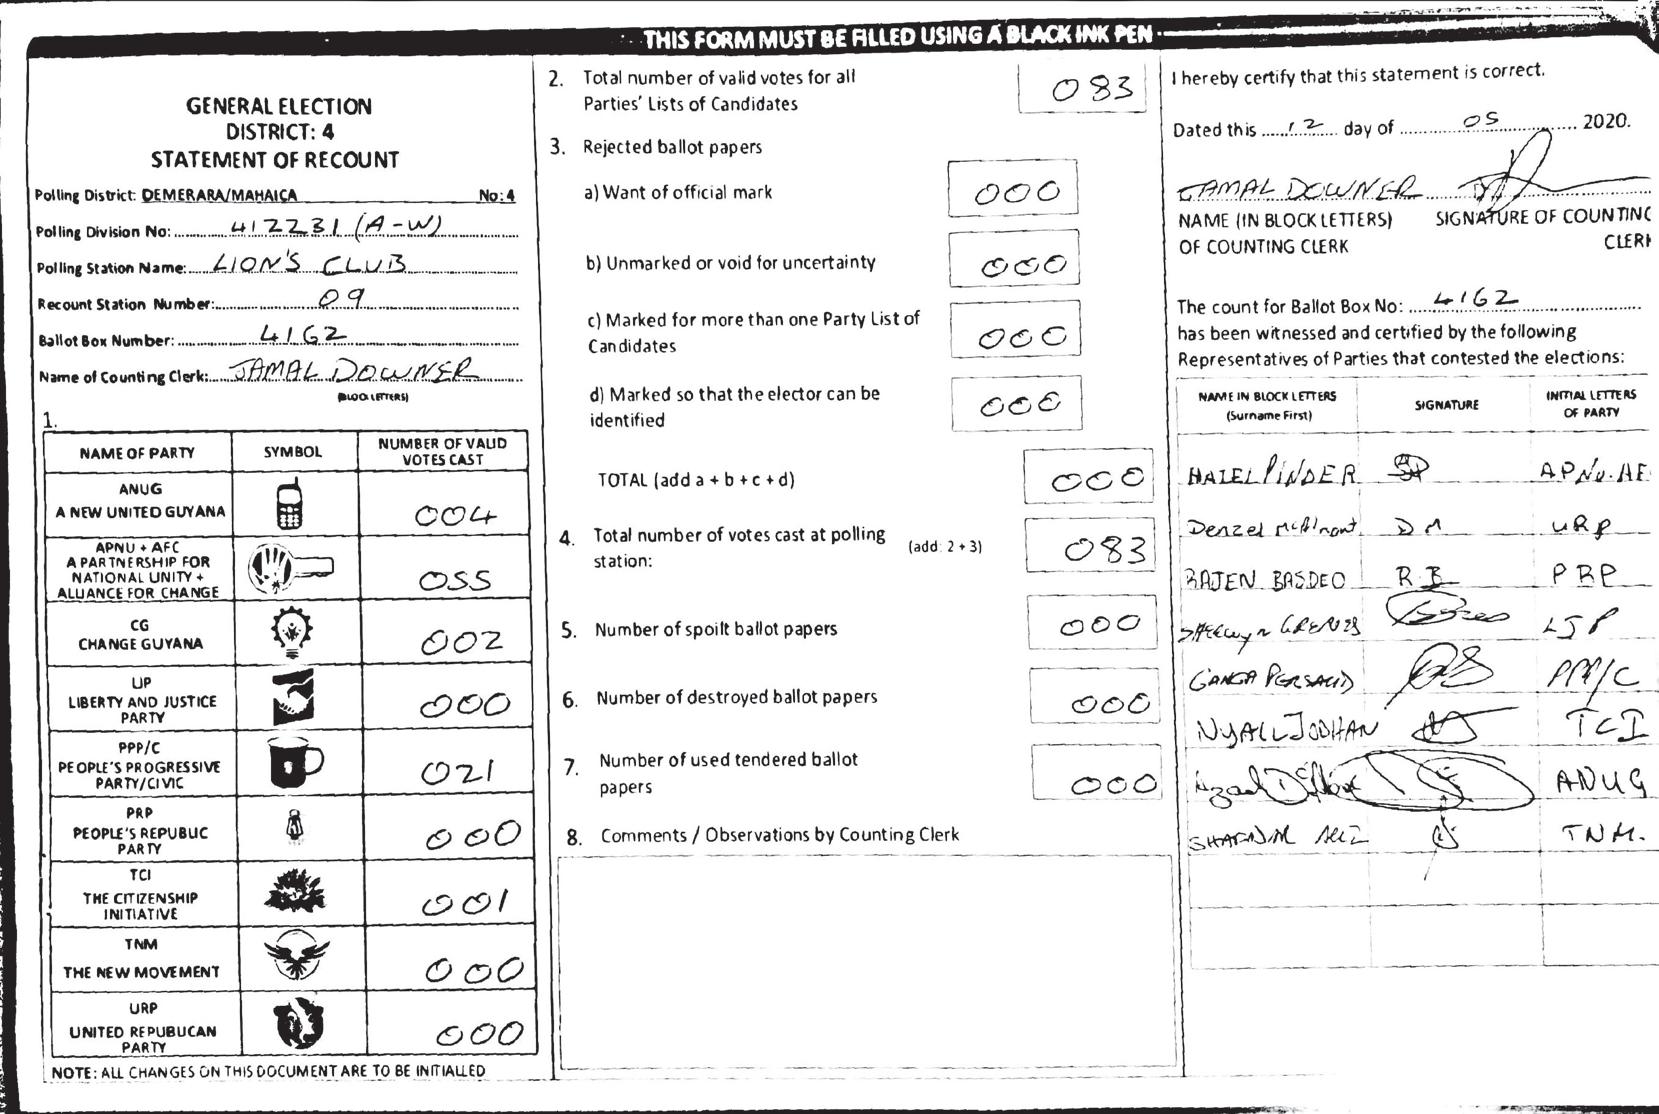 THIS FORM MUST BE FILLED USING A BLACK INK PEN
GENERAL ELECTION
DISTRICT: 4
STATEMENT OF RECOUNT
Polling District: DEMERARA/MAHAICA No: 4
Polling Division No: 412231 (A-W)
Polling Station Name: LION'S CLUB
Recount Station Number: 09
Ballot Box Number: 4162
Name of Counting Clerk: JAMAL DOWNER
(BLOCK LETTERS)
1.
NAME OF PARTY SYMBOL NUMBER OF VALID VOTES CAST
ANUG
A NEW UNITED GUYANA 004
APNU + AFC
A PARTNERSHIP FOR
NATIONAL UNITY +
ALLIANCE FOR CHANGE 055
CG
CHANGE GUYANA 002
LJP
LIBERTY AND JUSTICE
PARTY 000
PPP/C
PEOPLE'S PROGRESSIVE
PARTY/CIVIC 021
PRP
PEOPLE'S REPUBLIC
PARTY 000
TCI
THE CITIZENSHIP
INITIATIVE 001
TNM
THE NEW MOVEMENT 000
URP
UNITED REPUBLICAN
PARTY 000
NOTE: ALL CHANGES ON THIS DOCUMENT ARE TO BE INITIALLED
2. Total number of valid votes for all
Parties' Lists of Candidates 083
3. Rejected ballot papers
a) Want of official mark 000
b) Unmarked or void for uncertainty 000
c) Marked for more than one Party List of
Candidates 000
d) Marked so that the elector can be
identified 000
TOTAL (add a + b + c + d) 000
4. Total number of votes cast at polling
station: (add: 2 + 3) 083
5. Number of spoilt ballot papers 000
6. Number of destroyed ballot papers 000
7. Number of used tendered ballot
papers 000
8. Comments / Observations by Counting Clerk
I hereby certify that this statement is correct.
Dated this 12 day of 05 2020.
JAMAL DOWNER
NAME (IN BLOCK LETTERS) SIGNATURE OF COUNTING
OF COUNTING CLERK CLERK
The count for Ballot Box No: 4162
has been witnessed and certified by the following
Representatives of Parties that contested the elections:
NAME IN BLOCK LETTERS SIGNATURE INITIAL LETTERS
(Surname First) OF PARTY
HAZEL PINDER APNU.AF
Denzel DM URP
RAJEN BASDEO R.B PRP
LJP
GANGA PERSAUD PPP/C
NYALL JODHAN TCI
ANUG
TNM.